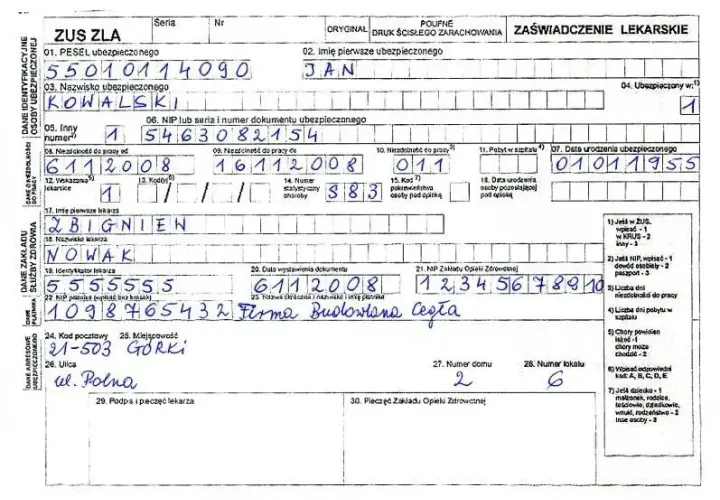 Seria Nr
ZUS ZLA ORYGINAŁ POUFNE DRUK ŚCISŁEGO ZARACHOWANIA ZAŚWIADCZENIE LEKARSKIE
DANE IDENTYFIKACYJNE OSOBY UBEZPIECZONEJ
01. PESEL ubezpieczonego 02. Imię pierwsze ubezpieczonego
55010114090 JAN
03. Nazwisko ubezpieczonego 04. Ubezpieczony w:1)
KOWALSKI 1
05. Inny numer2) 06. NIP lub seria i numer dokumentu ubezpieczonego
1 5463082154
DANE O NIEZDOLNOŚCI DO PRACY
08. Niezdolność do pracy od 09. Niezdolność do pracy do 10. Niezdolność do pracy3) 11. Pobyt w szpitalu4) 07. Data urodzenia ubezpieczonego
6112008 16112008 011 01011955
12. Wskazania5) lekarskie 13. Kod(y)6) 14. Numer statystyczny choroby 15. Kod7) pokrewieństwa osoby pod opieką 16. Data urodzenia osoby pozostającej pod opieką
1 / / / S83
DANE ZAKŁADU SŁUŻBY ZDROWIA
17. Imię pierwsze lekarza
ZBIGNIEW
18. Nazwisko lekarza
NOWAK
19. Identyfikator lekarza 20. Data wystawienia dokumentu 21. NIP Zakładu Opieki Zdrowotnej
5555555 6112008 12345678910
DANE PŁATNIKA
22. NIP płatnika (wpisać bez kresek) 23. Nazwa skrócona / nazwisko i imię płatnika
1098765432 Firma Budowlana Cegła
DANE ADRESOWE UBEZPIECZONEGO
24. Kod pocztowy 25. Miejscowość
21-503 GÓRKI
26. Ulica 27. Numer domu 28. Numer lokalu
ul. Polna 2 6
29. Podpis i pieczęć lekarza 30. Pieczęć Zakładu Opieki Zdrowotnej
1) Jeśli w ZUS,
wpisać - 1
w KRUS - 2
inny - 3
2) Jeśli NIP, wpisać - 1
dowód osobisty - 2
paszport - 3
3) Liczba dni
niezdolności do pracy
4) Liczba dni pobytu w
szpitalu
5) Chory powinien
leżeć - 1
chory może
chodzić - 2
6) Wpisać odpowiedni
kod: A, B, C, D, E
7) Jeśli dziecko - 1
małżonek, rodzice,
teściowie, dziadkowie,
wnuki, rodzeństwo - 2
inne osoby - 3